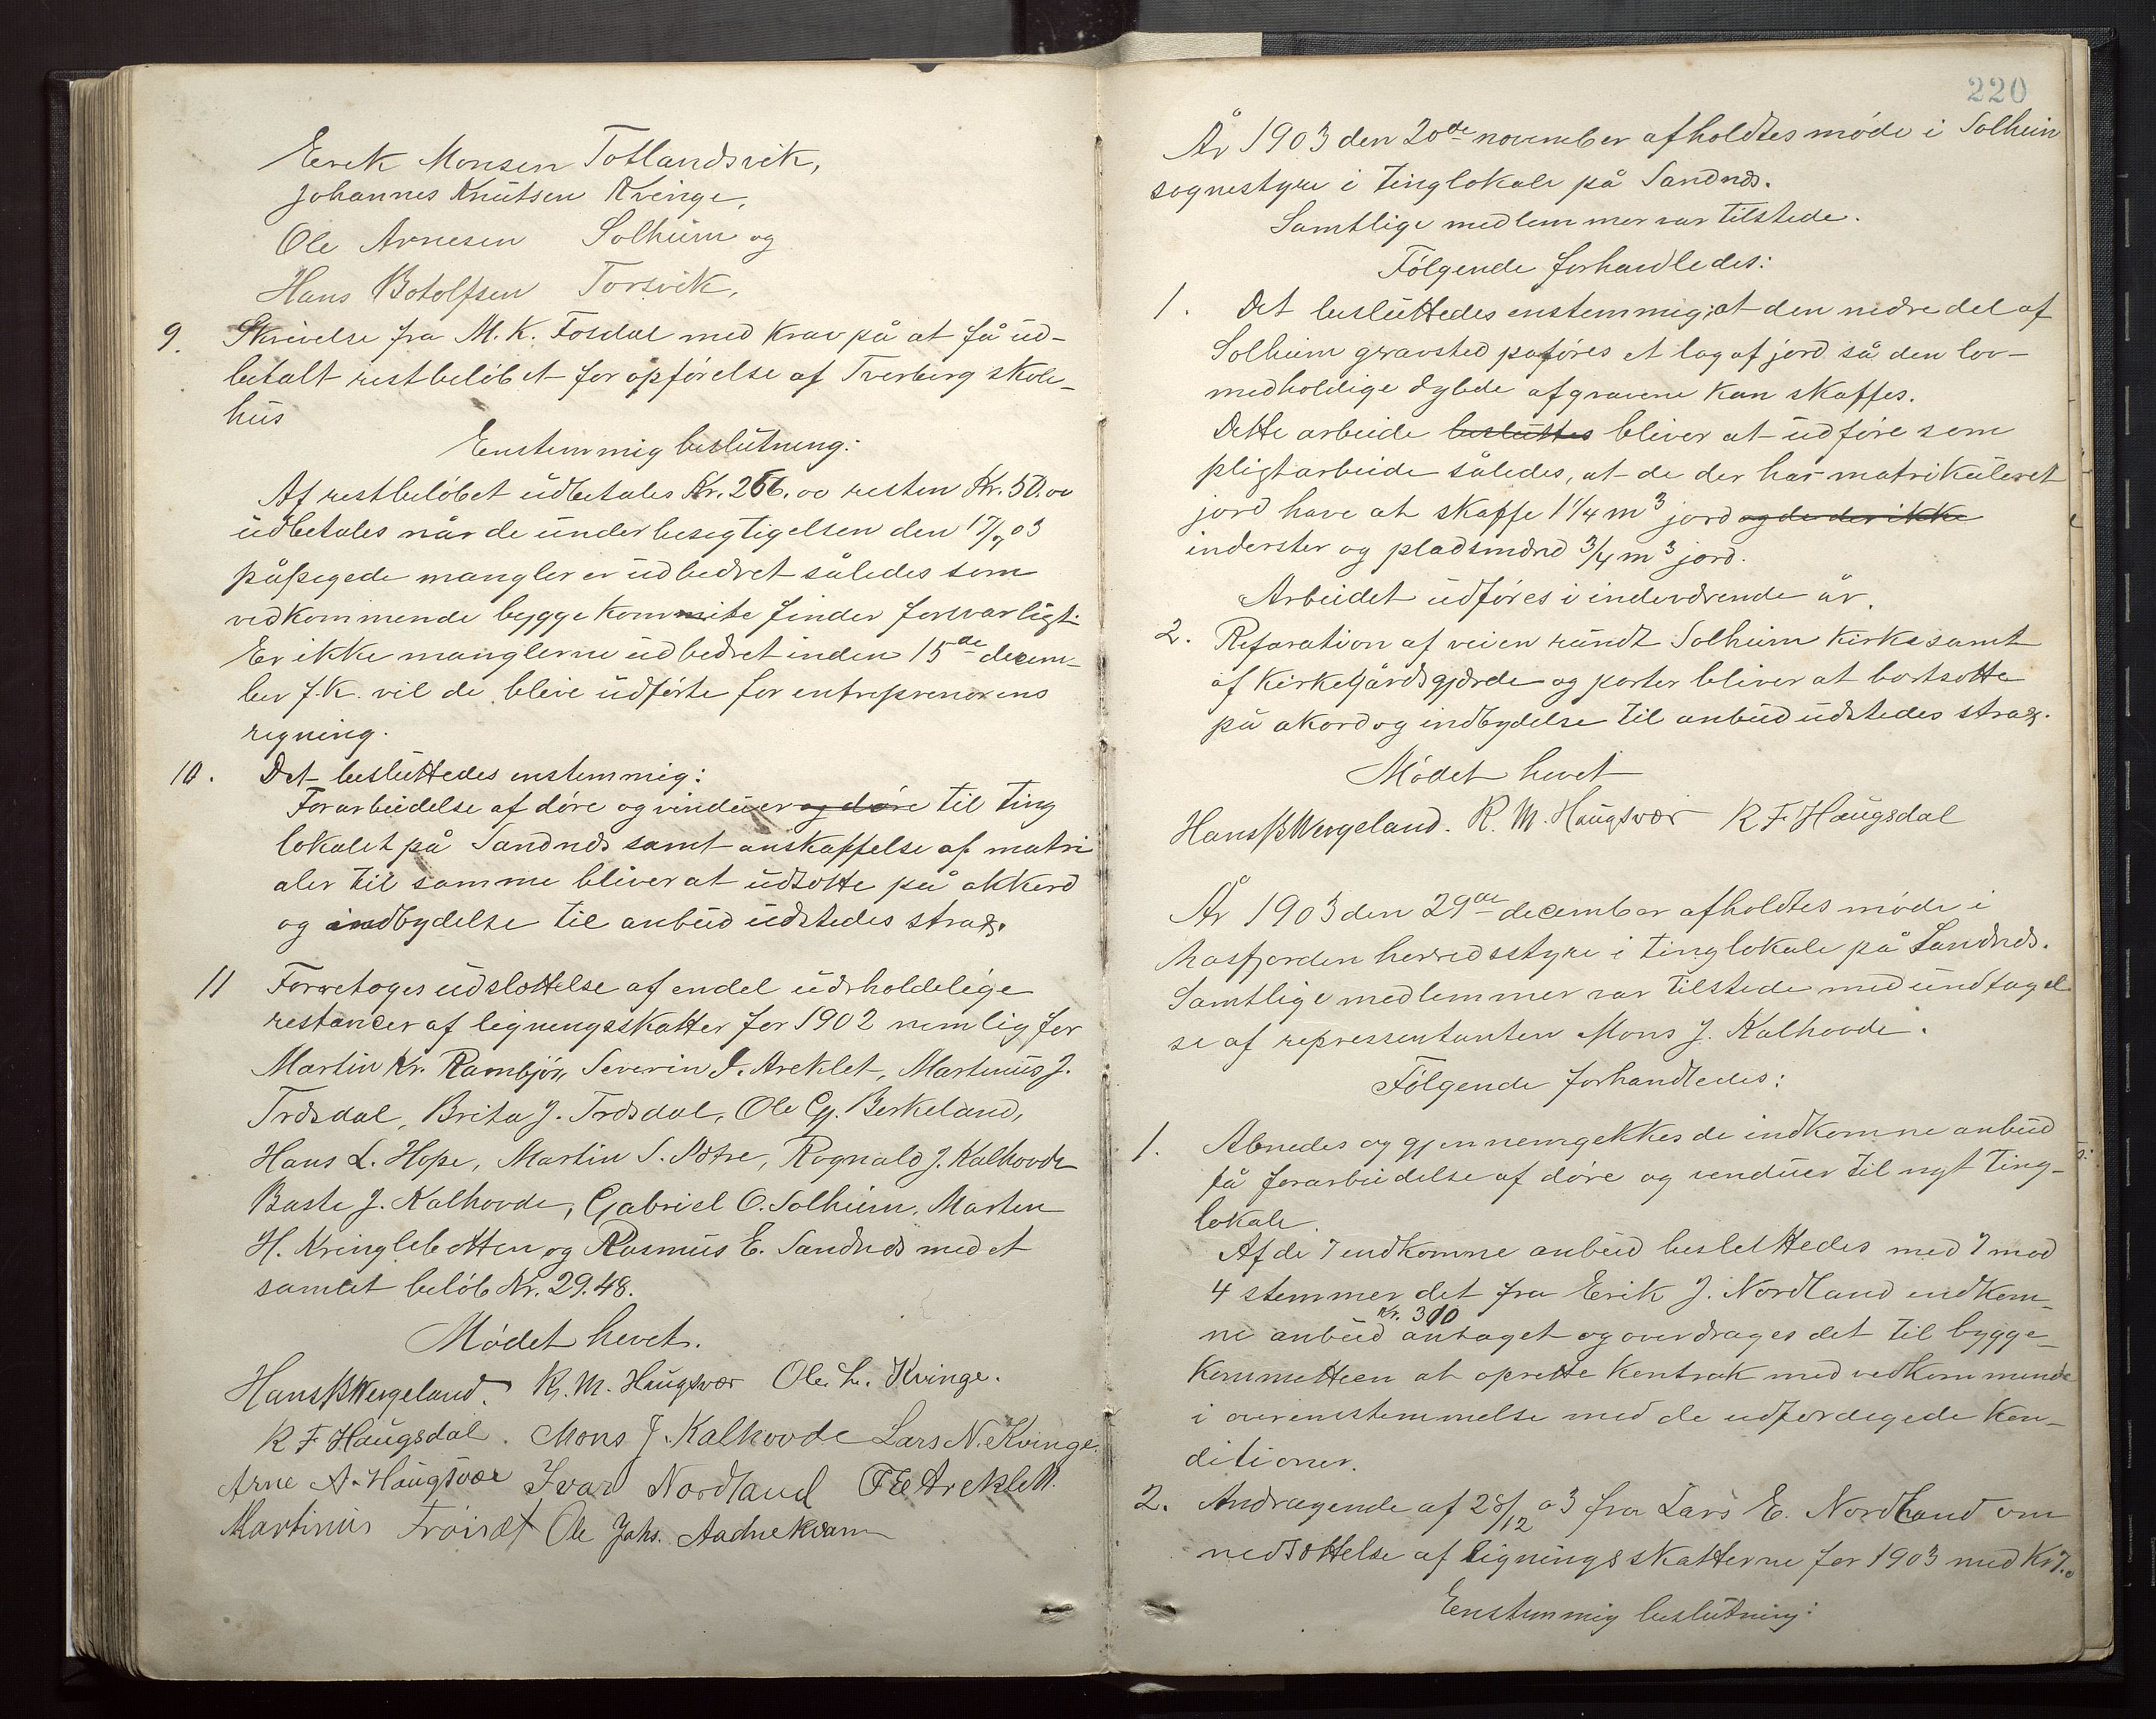 Eerik Monsen Totlandsvik,
Johannes Knutsen Kvinge,
Ole Arnesen Solheim og
Hans Botolfsen Torsvik,
9. Skrivelse fra M. K. Fosdal med krav på at få ud-
betalt restbeløbet for opførelse af Tverberg skole-
hus
Enstemmig beslutning:
Af restbeløbet udbetales Kr. 266.00 resten Kr. 50.00
udbetales når de under besegtigelsen den 17/7 03
påpegede mangler er udbedret således som
vedkommende byggekommite finder forsvarligt.
Er ikke manglerne udbedret inden 15de decem-
ber f.k. vil de blive udførte for entreprenørens
regning.
10. Det besluttedes enstemmig:
Forarbeidelse af døre og vinduer og døre til ting
lokalet på Sandnes samt anskaffelse af matri
aler til samme bliver at udsette på akkord
og indbydelse til anbud udstedes straks.
11 Forretoges udslettelse af endel uerholdelige
restancer af ligningsskatter for 1902 nemlig for
Martin Kr. Rambjør, Severin I. Areklet, Martinus J.
Trædal, Brita J. Trædal, Ole Gj. Berkeland,
Hans L. Hope, Martin S. Sætre, Rognald J. Kalhovde
Baste J. Kalhovde, Gabriel O. Solheim, Marten
H. Kringlebotten og Rasmus E. Sandnes med et
samlet beløb Kr. 29.48.
Mødet hevet.
Hans B Wergeland. R. M. Haugsvær Ole L. Kvinge.
K F Haugsdal. Mons J. Kalhovde Lars N. Kvinge.
Arne A. Haugsvær Ivar Nordland T E Areklett.
Martinus Frøiset Ole Johs. Aadnekvam
220
År 1903 den 20de november afholdtes møde i Solheim
sognestyre i tinglokale på Sandnes.
Samtlige medlemmer var tilstede.
Følgende forhandledes:
1. Det besluttedes enstemmig, at den nedre del af
Solheim gravsted påføres et lag af jord så den lov-
medholdige dybde af gravene kan skaffes.
Dette arbeide besluttes bliver at udføre som
pligtarbeide således, at de der har matrikuleret
jord have at skaffe 1 1/4 m3 jord og de der ikke
inderster og pladsmænd 3/4 m3 jord.
Arbeidet udføres i indeværende år.
2. Reparation af veien rundt Solheim kirke samt
af kirkegårdsgjærde og porter bliver at bortsætte
på akord og indbydelse til anbud udstedes straks.
Mødet hevet
Hans B Wergeland. R. M. Haugsvær K F Haugsdal
År 1903 den 29de december afholdtes møde i
Masfjorden herredsstyre i tinglokale på Sandnes.
Samtlige medlemmer var tilstede med undtagel
se af repressentanten Mons J. Kalhovde.
Følgende forhandledes:
1. Abnedes og gjennemgekkes de indkomne anbud
på forarbeidelse af døre og vinduer til nyt ting-
lokale.
Af de 7 indkomne anbud besluttedes med 7 mod
4 stemmer det fra Eerik J. Nordland indkom-
kr. 300
ne anbud antaget og overdrages det til bygge-
kommetteen at oprette kontrakt med vedkommende
i overenstemmelse med de udferdigede kon-
ditioner.
2. Andragende af 28/12 03 fra Lars E. Nordland om
nedsættelse af ligningsskatterne for 1903 med Kr 7.0
Eenstemmig beslutning: